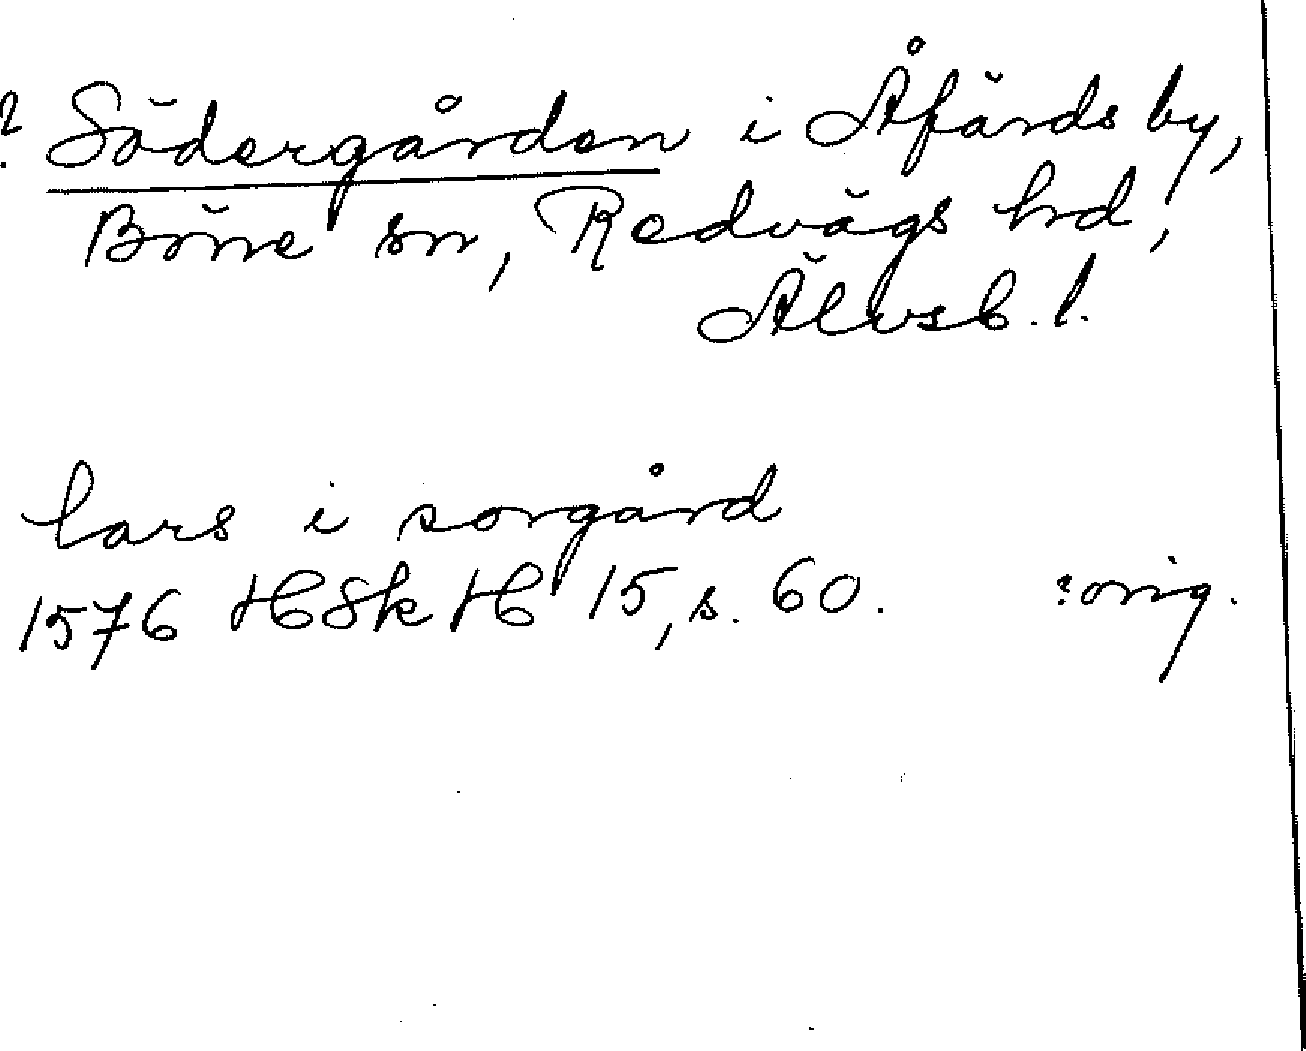 ? Södergården i Åfärds by,
Böne sn, Redvägs hd,
Älvsb. l.
lars i sorgård
1576 HSkH 15, s. 60. :orig.